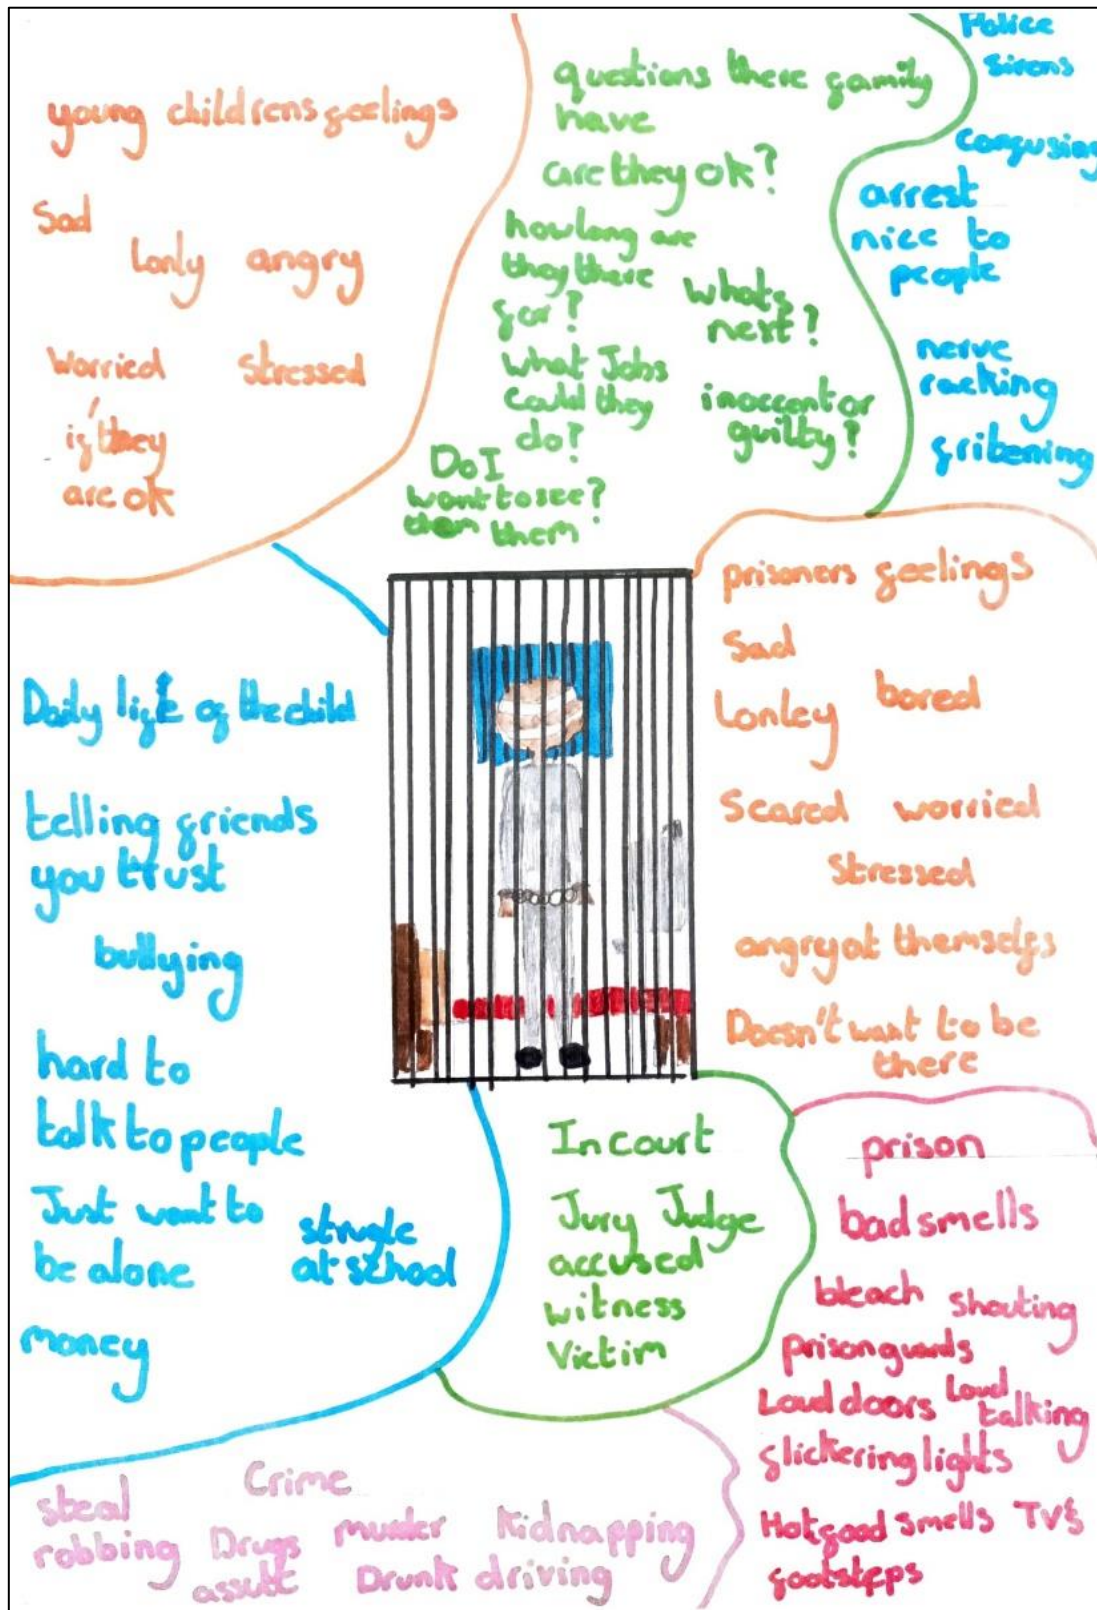 young childrens feelings
Sad
Lonly angry
Worried Stressed
if they
are ok
questions there family
have
are they ok?
how long are
they there
for?
whats
next?
what Jobs
could they
do?
inoccent or
guilty?
Do I
want to see?
them them
Police
sirens
confusing
arrest
nice to
people
nerve
racking
fritening
prisoners feelings
Sad
Lonley bored
Scared worried
Stressed
angry at themselfs
Doesn't want to be
there
Daily life of the child
telling friends
you trust
bullying
hard to
talk to people
Just want to
be alone
strugle
at school
money
In court
Jury Judge
accused
witness
Victim
prison
bad smells
bleach shouting
prison guards
Loud doors Loud
talking
flickering lights
Hot food smells TVs
footsteps
Crime
steal
robbing Drugs murder Kidnapping
assult Drunk driving